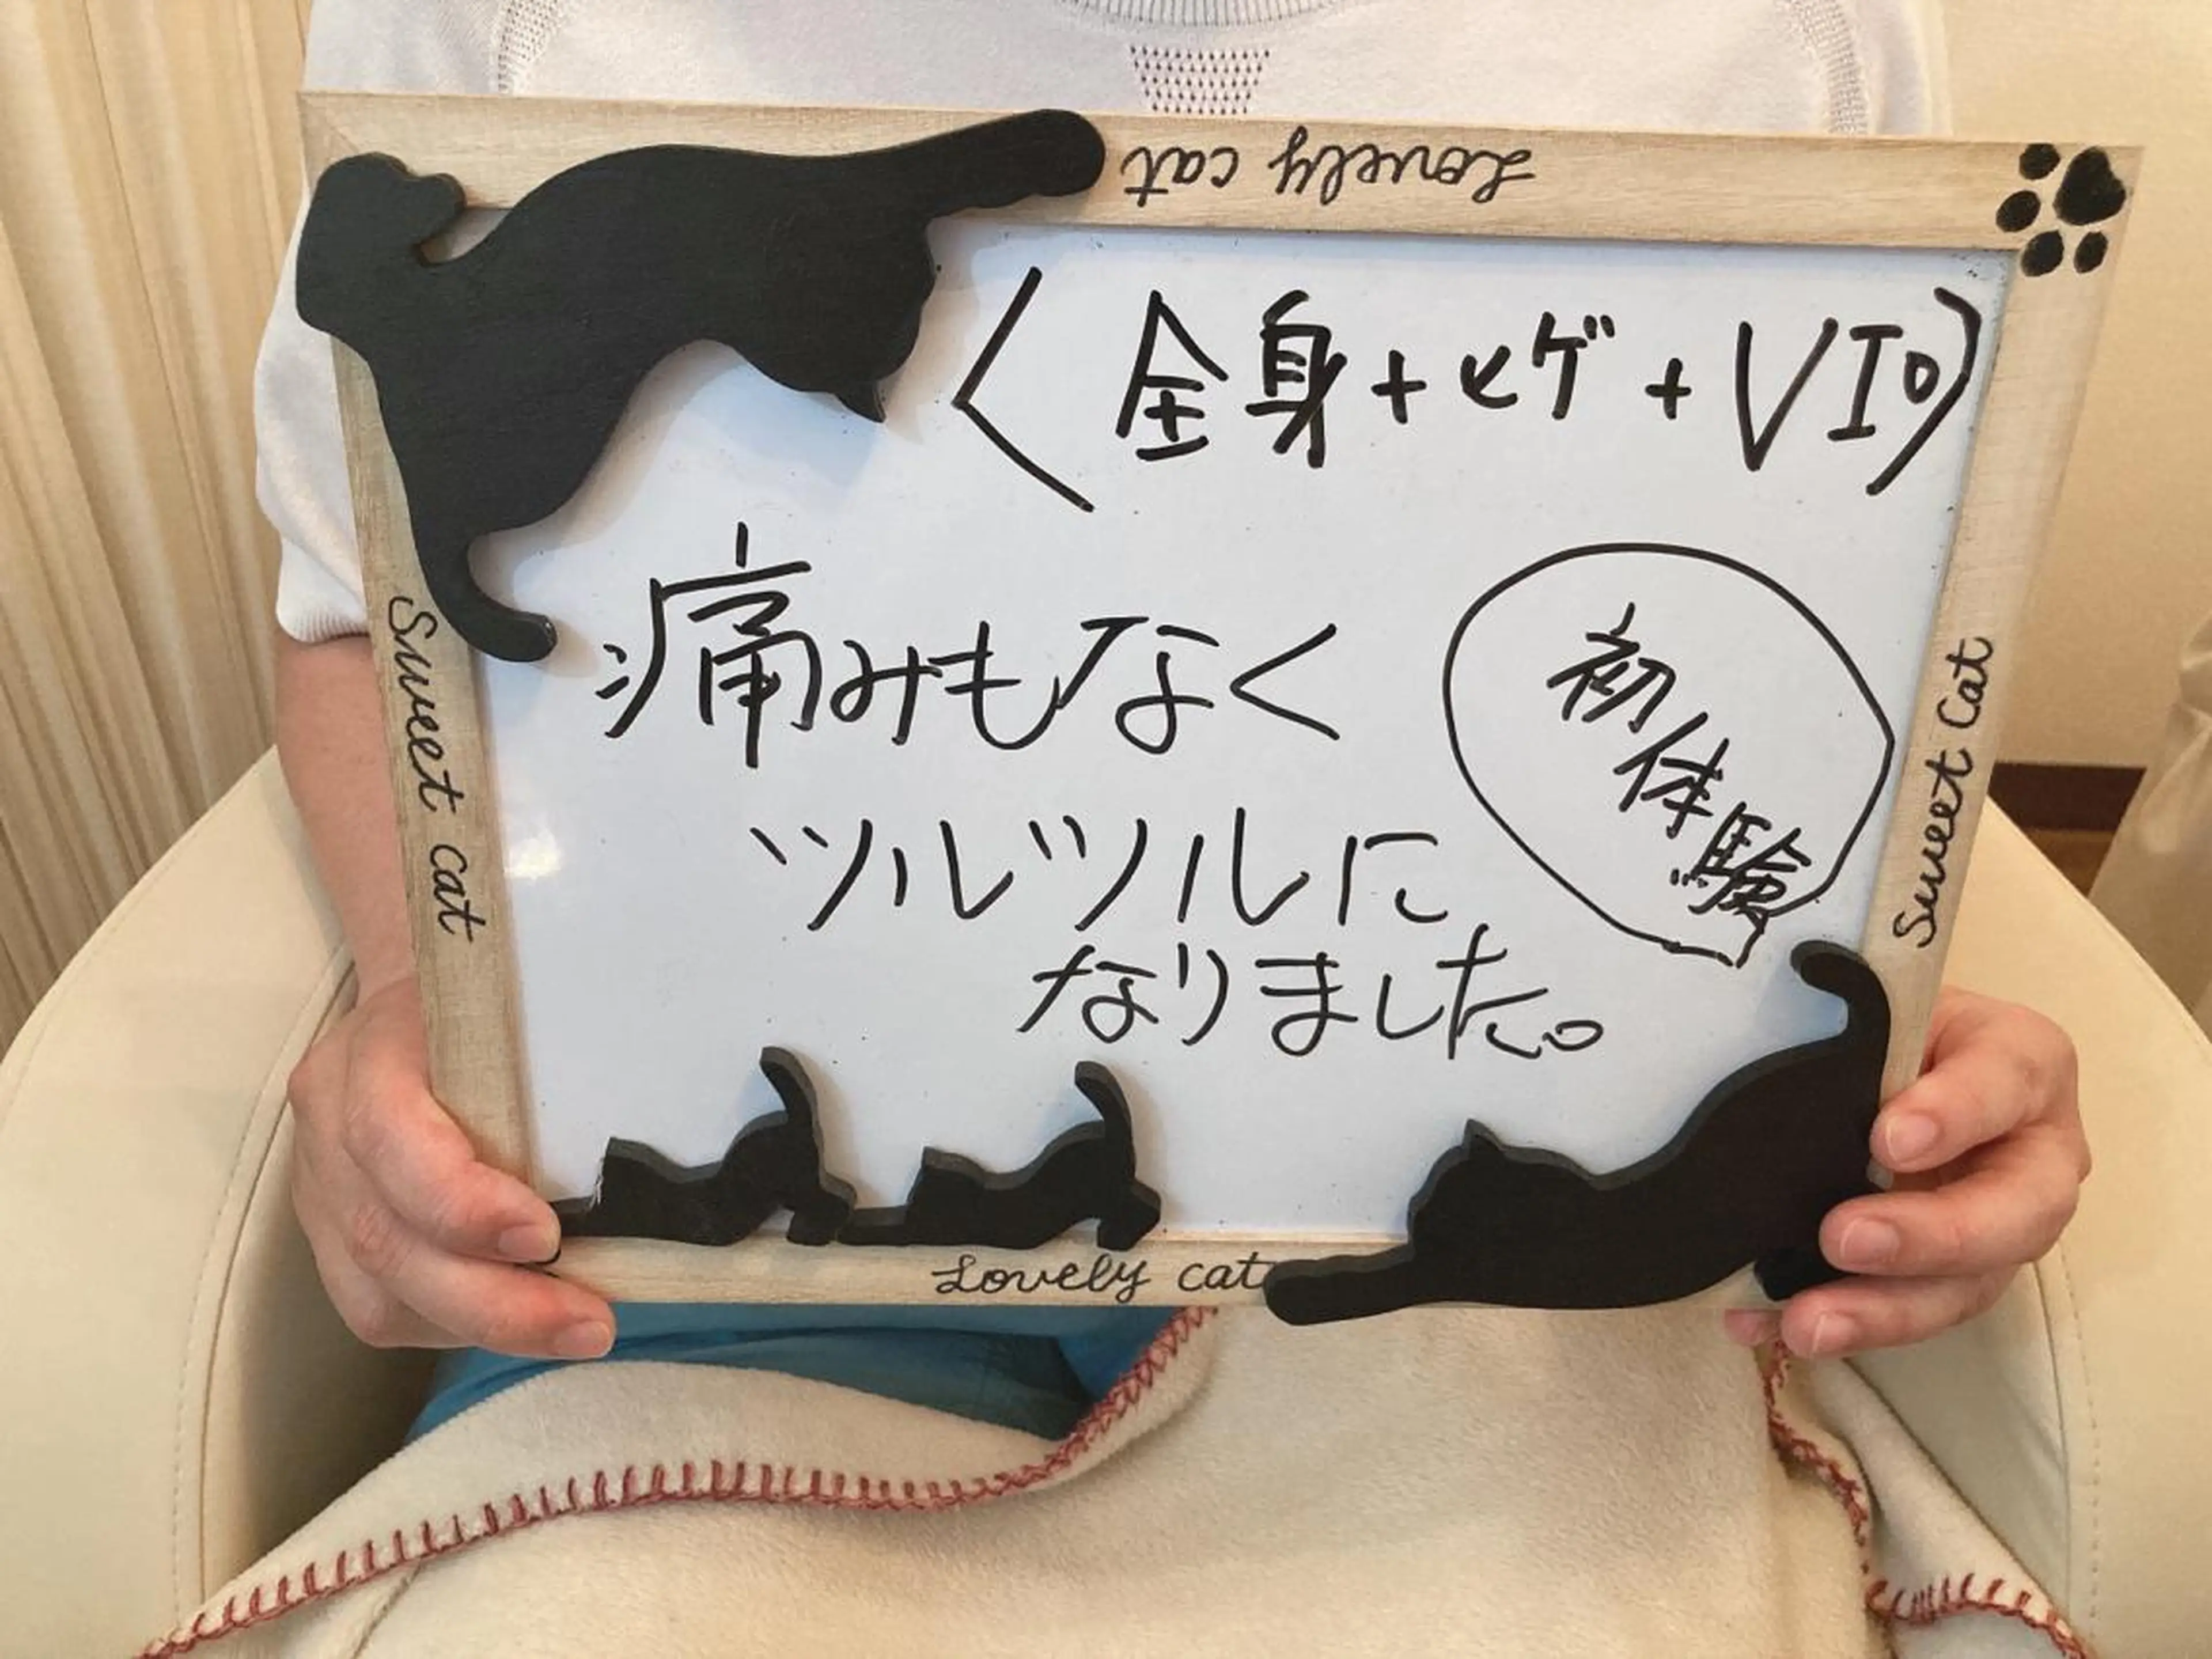 Lovely cat
〈全身+ヒゲ+VIO〉
痛みもなく
ツルツルに
なりました。
初体験
Sweet cat
Sweet Cat
Lovely cat